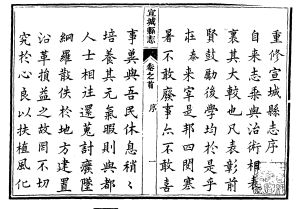 重修宣城縣志序
自來志乘與治術相表
裏其大較也凡表彰前
賢鼓勵後學均於是乎
莊泰來宰是邦四閱寒
暑不敢廢事亦不敢
宣城縣志
卷之首
序
一
事冀與吾民休息稍稍
培養其元氣暇則與都
人士相往還蒐討廢墜
網羅散佚於地方建置
沿革損益之故罔不切
究於心良以扶植風化